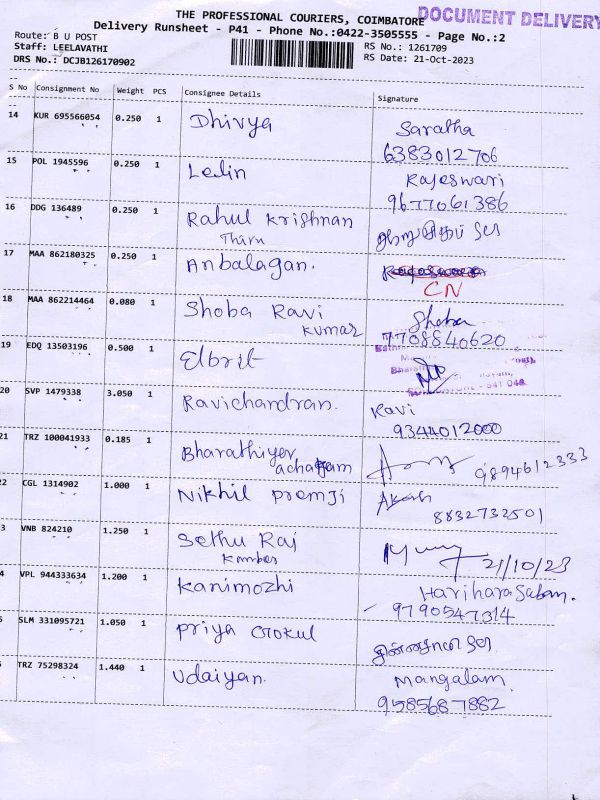 THE PROFESSIONAL COURIERS, COIMBATORE
DOCUMENT DELIVERY
Delivery Runsheet - P41 - Phone No.:0422-3505555 - Page No.:2
Route: B U POST
Staff: LEELAVATHI
RS No.: 1261709
DRS No.: DCJB126170902
RS Date: 21-Oct-2023
S No Consignment No Weight PCS Consignee Details Signature
14 KUR 695566054 0.250 1 Dhivya Saratha
6383012706
15 POL 1945596 0.250 1 Ledin Rajeswari
9677061386
16 DDG 136489 0.250 1 Rahul Krishnan
Thiru
17 MAA 862180325 0.250 1 Anbalagan.
CN
18 MAA 862214464 0.080 1 Shoba Ravi Shoba
Kumar 7708840620
19 EDQ 13503196 0.500 1 Elbrit
641 046
20 SVP 1479338 3.050 1 Ravichandran. Ravi
9344012000
21 TRZ 100041933 0.185 1 Bharathiyer 9894612333
22 CGL 1314902 1.000 1 Nikhil Premji Akash
8832732501
3 VNB 824210 1.250 1 Sethu Raj
21/10/23
4 VPL 944333634 1.200 1 Kanimozhi Hariharasudan.
9790547314
5 SLM 331095721 1.050 1 Priya Gokul
TRZ 75298324 1.440 1 Udaiyan. Mangalam
9585687882